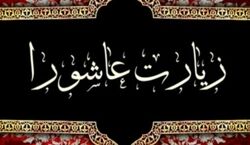 زیارت عاشورا